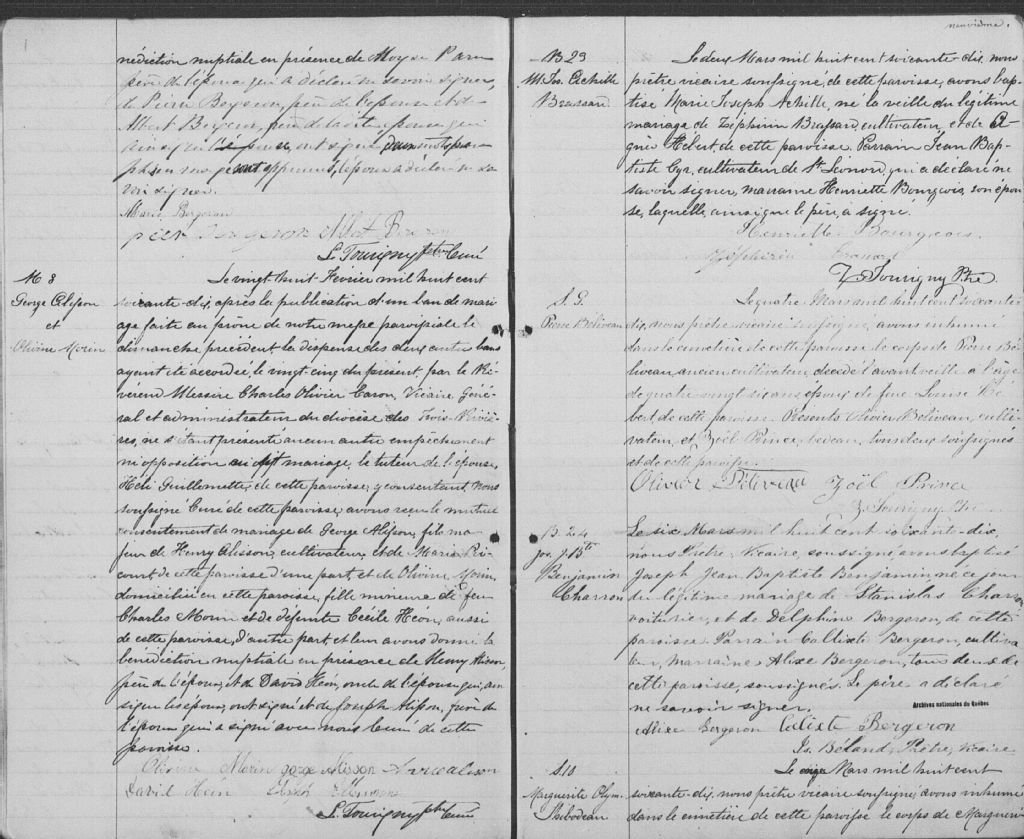 nédiction nuptiale en présence de Moyse Par
père de l'époux qui a déclaré ne savoir signer,
de Pierre Bergeron, père de l'épouse et de
Albert Bergeron, frère de la dite épouse qui
ainsi que l'épouse, ont signé
sont opposment, l'époux a déclaré ne sa-
voir signer.
Marie Bergeron
pierr Bergeron Albert Bergeron
L. Tourigny ptre Curé
M 8
George Alisson
et
Olivine Morin
Le vingt huit Février mil huit cent
soixante dix, après la publication d'un ban de mari-
age faite au prône de notre messe paroissiale le
dimanche précédent, la dispense des deux autres bans
ayant été accordée, le vingt cinq du présent par le Ré-
vérend Messire Charles Olivier Caron, Vicaire Géné-
ral et administrateur du diocèse des Trois-Riviè-
res, ne s'étant présenté aucun autre empêchement
ni opposition au dit mariage, le tuteur de l'épouse
Héli Guillemette, de cette paroisse, y consentant, Nous
soussigné Curé de cette paroisse, avons reçu le mutuel
consentement de mariage de George Alisson, fils ma-
jeur de Henry Alisson, cultivateur, et de Marie
court, de cette paroisse d'une part, et de Olivine Morin,
domiciliée en cette paroisse, fille mineure de feu
Charles Morin et de défunte Cécile Héon, aussi
de cette paroisse, d'autre part et leur avons donné la
bénédiction nuptiale en présence de Henry Alisson,
père de l'époux, et de David Héon, oncle de l'épouse qui, ain-
si que les époux, ont signé et de Joseph Alisson, frère de
l'époux qui a signé avec nous Curé de cette
paroisse.
Olivine Morin gorge Alisson
David Héon
L. Tourigny ptre Curé
neuvième.
B 23
M. Jos. Achille
Brassard
Le deux Mars mil huit cent soixante-dix, nous
prêtre vicaire soussigné, de cette paroisse, avons bap-
tisé Marie Joseph Achille, né la veille du légitime
mariage de Zéphirin Brassard, cultivateur, et de A-
gnès Hébert, de cette paroisse. Parrain Jean Bap-
tiste Cyr, cultivateur de St Léonard, qui a déclaré ne
savoir signer, marraine Henriette Bourgeois, son épou-
se, laquelle, ainsi que le père, a signé.
Henriette Bourgeois.
Zéphirin
Z. Tourigny Ptre
S. 9.
Pierre Béliveau
Le quatre Mars mil huit cent soixante
dix, nous prêtre vicaire soussigné, avons inhumé
dans le cimetière de cette paroisse le corps de Pierre Bé-
liveau, ancien cultivateur, décédé l'avant veille à l'âge
de quatre vingt six ans, époux de feue Louise Hé-
bert de cette paroisse. Présents Olivier Béliveau, culti-
vateur, et Zoël Prince, bedeau, tous deux soussignés
et de cette paroisse.
Olivier Béliveau Zoël Prince
Z. Tourigny Ptre
B. 24
Jos. J. Bte
Benjamin
Charron
Le six Mars mil huit cent soixante-dix,
nous Prêtre, Vicaire, soussigné avons baptisé
Joseph Jean Baptiste Benjamin, né ce jour
du légitime mariage de Stanislas Charron
voiturier, et de Delphine Bergeron, de cette
paroisse. Parrain Calixte Bergeron, cultiva-
teur, Marraine Alixe Bergeron, tous deux de
cette paroisse, soussignés. Le père a déclaré
ne savoir signer.
Archives nationales du Québec
Alixe Bergeron Calixte Bergeron
Js. Béland, Prêtre, Vicaire
S. 10
Marguerite Olym.
Thibodeau
Le onze Mars mil huit cent
soixante-dix, nous prêtre vicaire soussigné, avons inhumé
dans le cimetière de cette paroisse le corps de Marguerite